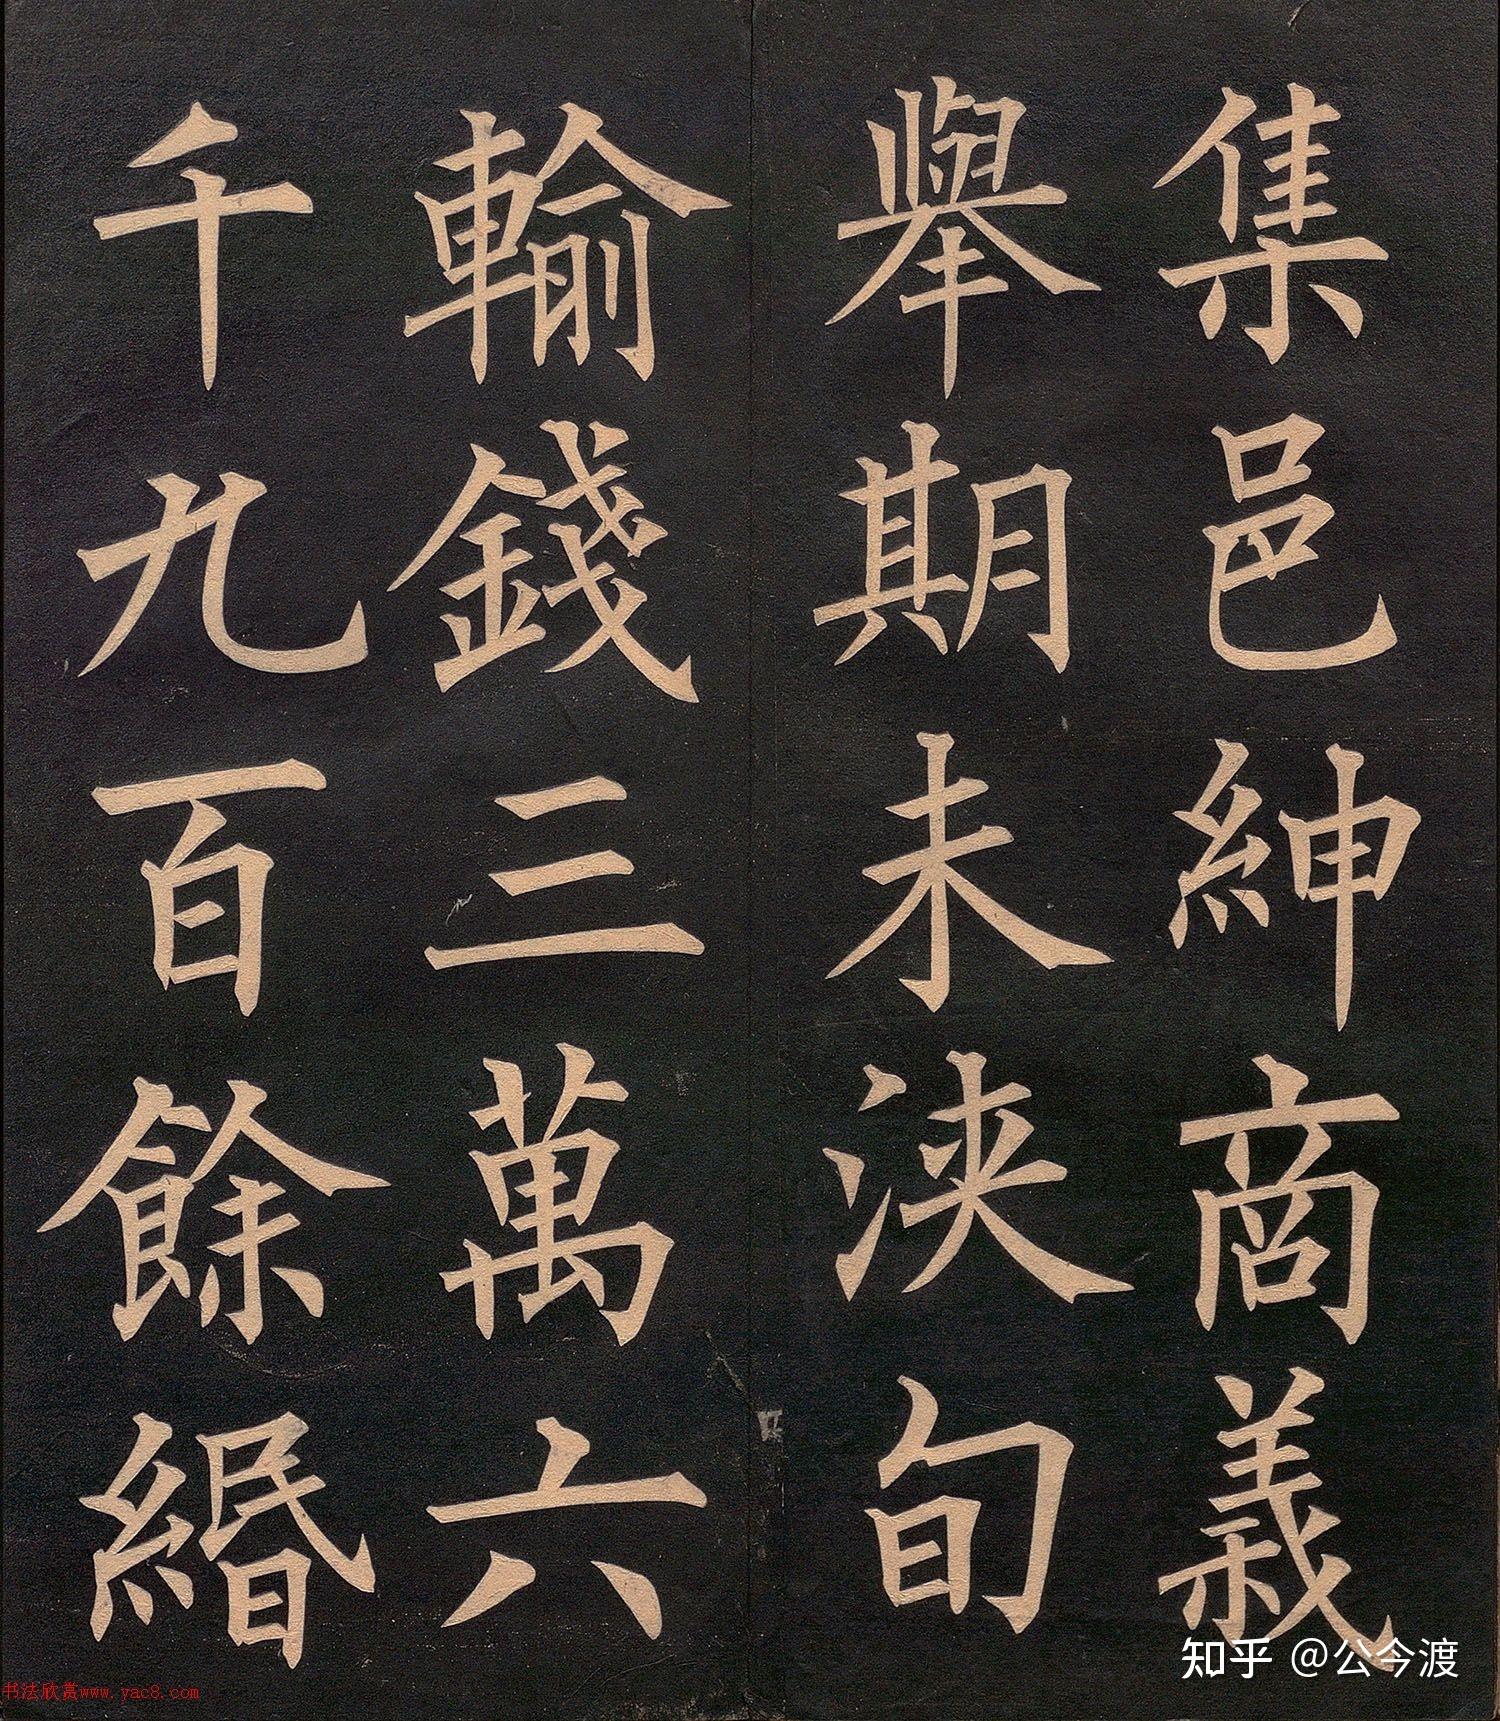 集邑紳商義
舉期未浹旬
輸錢三萬六
千九百餘緡
知乎 @公今渡
书法欣赏www.yac8.com